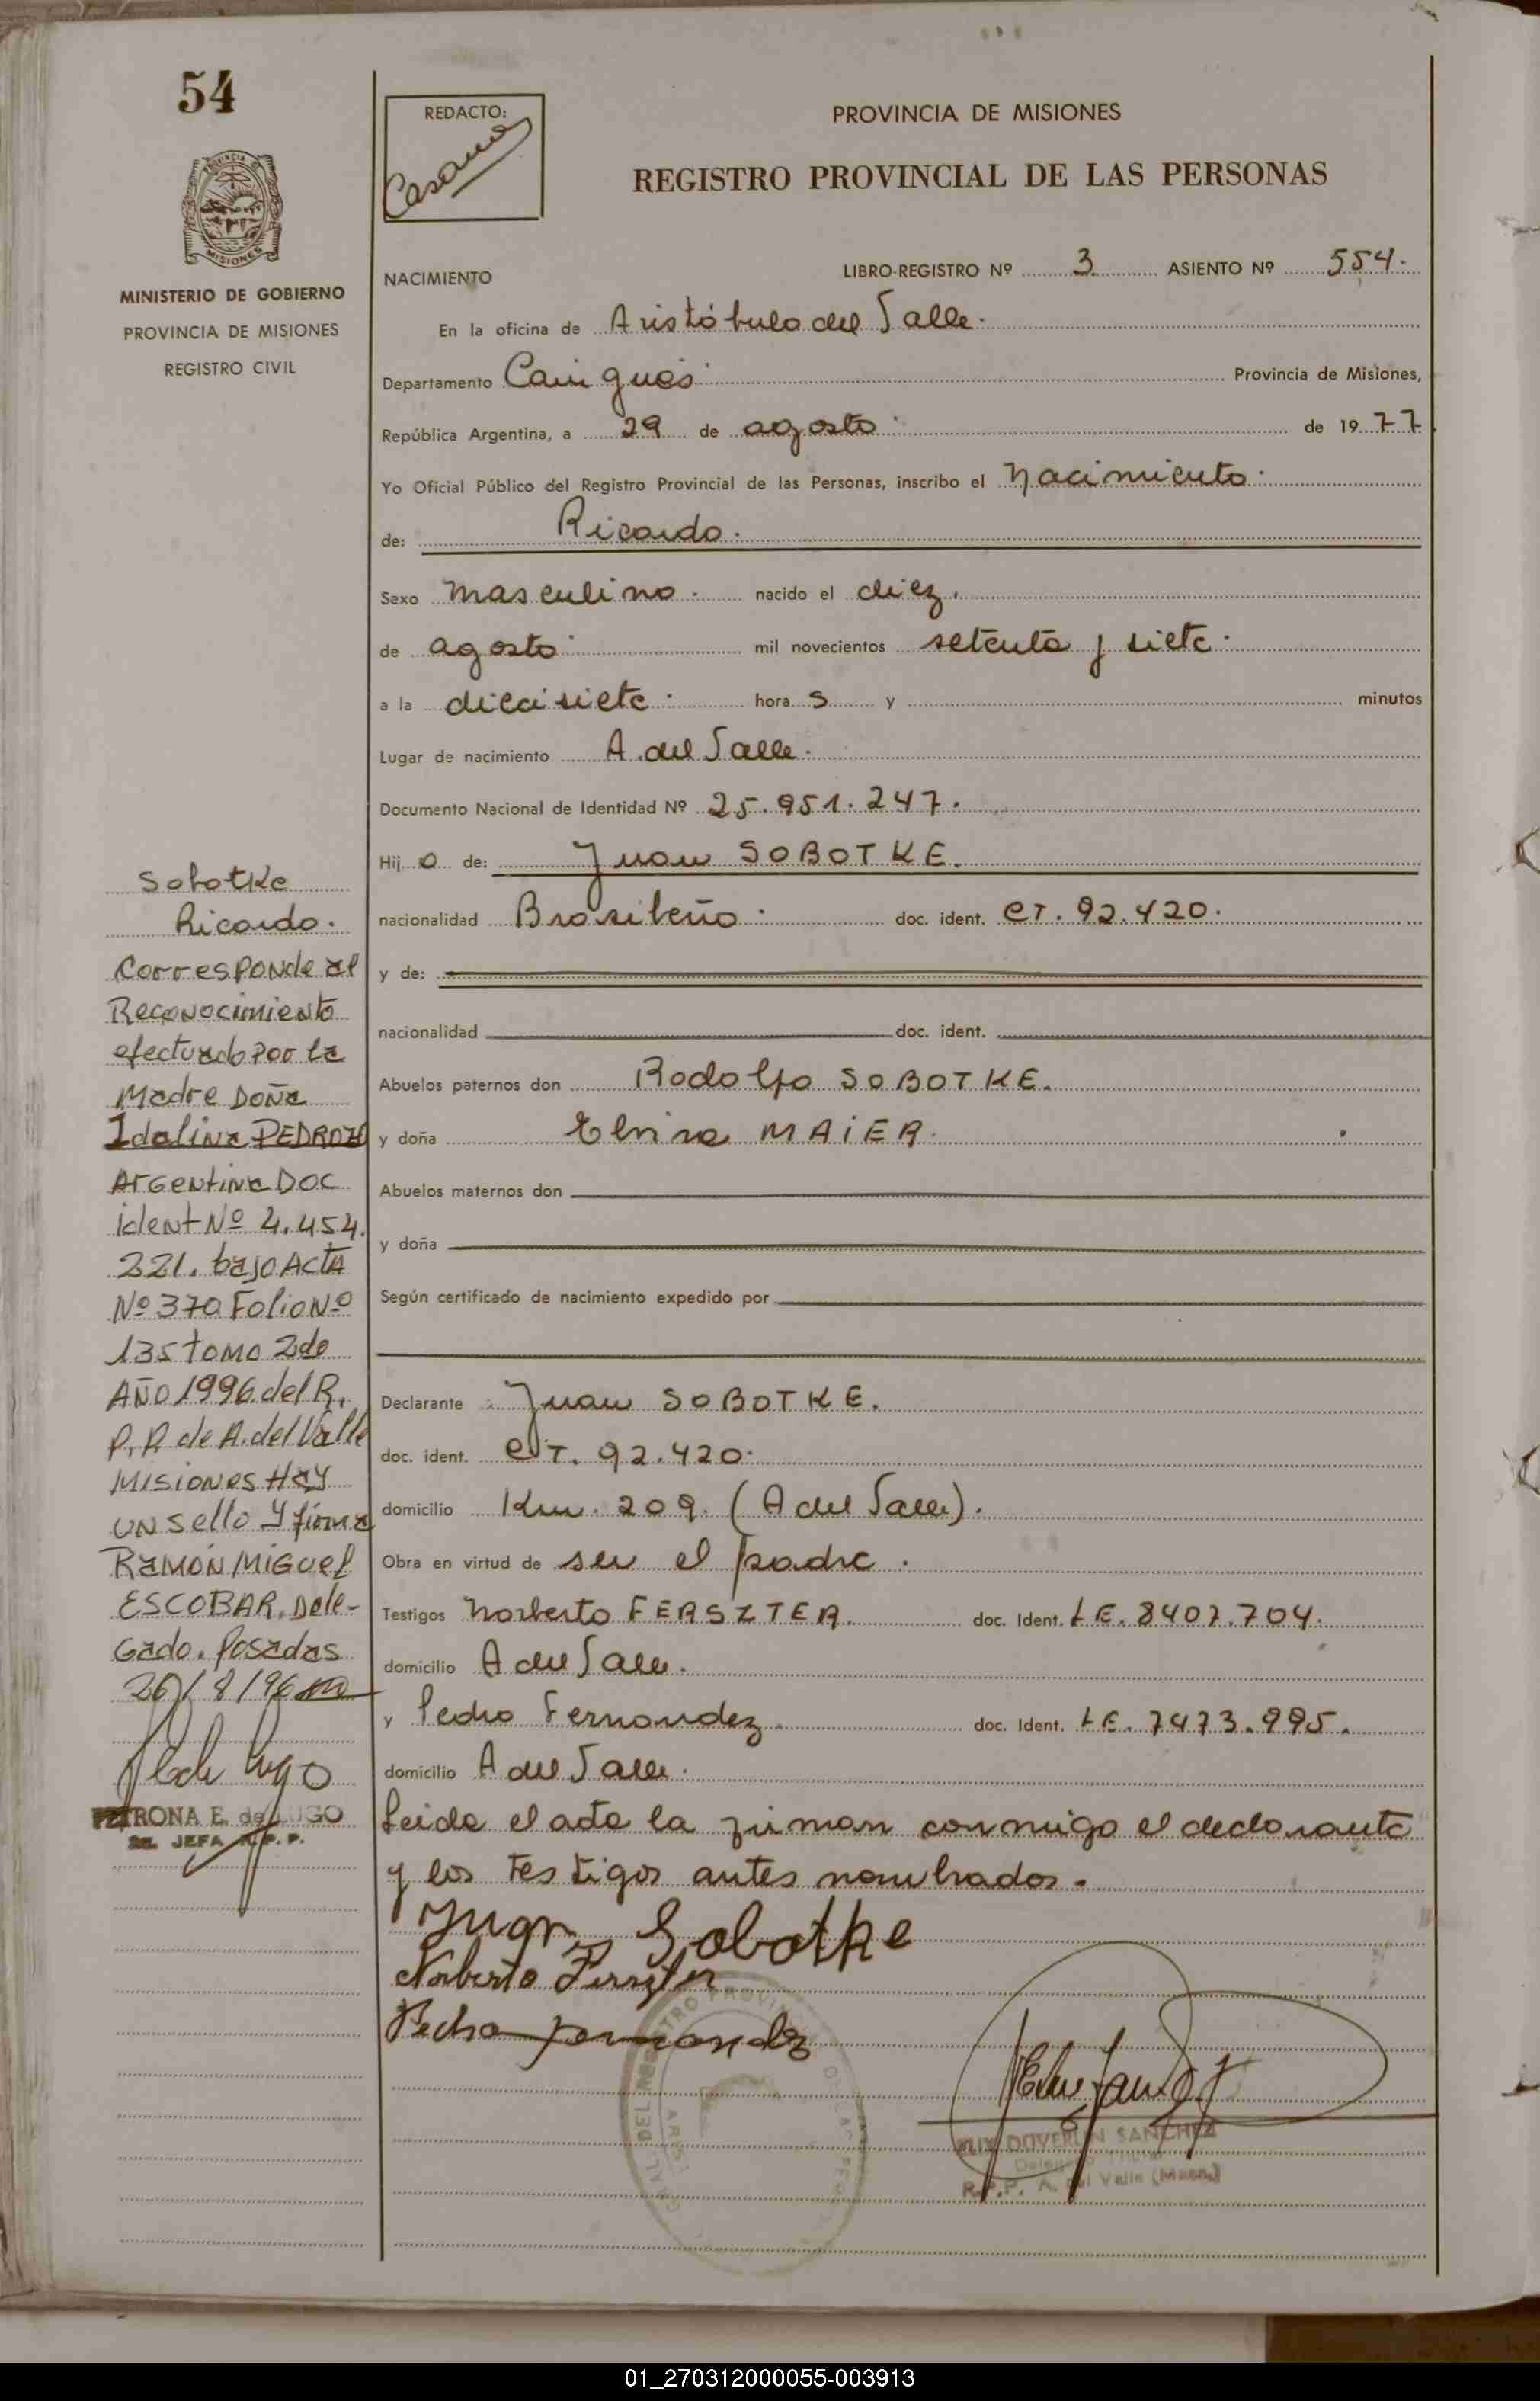 54
PROVINCIA DE
MISIONES
MINISTERIO DE GOBIERNO
PROVINCIA DE MISIONES
REGISTRO CIVIL
REDACTO:
PROVINCIA DE MISIONES
REGISTRO PROVINCIAL DE LAS PERSONAS
NACIMIENTO
LIBRO-REGISTRO Nº 3 ASIENTO Nº 554.
En la oficina de Aristóbulo del Valle.
Departamento Cainguás Provincia de Misiones,
República Argentina, a 29 de agosto de 1977
Yo Oficial Público del Registro Provincial de las Personas, inscribo el Nacimiento.
de: Ricardo.
Sexo masculino. nacido el diez.
de agosto mil novecientos setenta y siete.
a la diecisiete. hora s y minutos
Lugar de nacimiento A. del Valle.
Documento Nacional de Identidad Nº 25.951.247.
Hij o de: Juan SOBOTKE.
nacionalidad Brasileño. doc. ident. CT. 92.420.
y de:
nacionalidad doc. ident.
Abuelos paternos don Rodolfo SOBOTKE.
y doña Elvira MAIER.
Abuelos maternos don
y doña
Según certificado de nacimiento expedido por
Declarante Juan SOBOTKE.
doc. ident. CT. 92.420.
domicilio Km. 209. (A del Valle).
Obra en virtud de ser el padre.
Testigos Norberto FERSZTER. doc. Ident. LE. 8407.704.
domicilio A del Valle.
y Pedro Fernandez. doc. Ident. LE. 7473.995.
domicilio A del Valle.
Leida el acta la firman conmigo el declarante
y los testigos antes nombrados.
Juan Sobotke
Norberto Ferszter
Pedro Fernandez
SANCHEZ
R.P.P. A. del Valle
Sobotke
Ricardo.
Corresponde al
Reconocimiento
efectuado Por la
Madre DOÑA
Idalina PEDROZO
Argentina Doc
ident Nº 4.454.
221. bajo Acta
Nº 370 Folio Nº
135 tomo 2do
AÑO 1996 del R.
P.P. de A. del Valle
Misiones Hay
un sello y firma
RAMÓN MIGUEL
ESCOBAR. Dele-
gado. Posadas
20/8/96
PETRONA E. de LUGO
JEFA R.P.P.
01_270312000055-003913